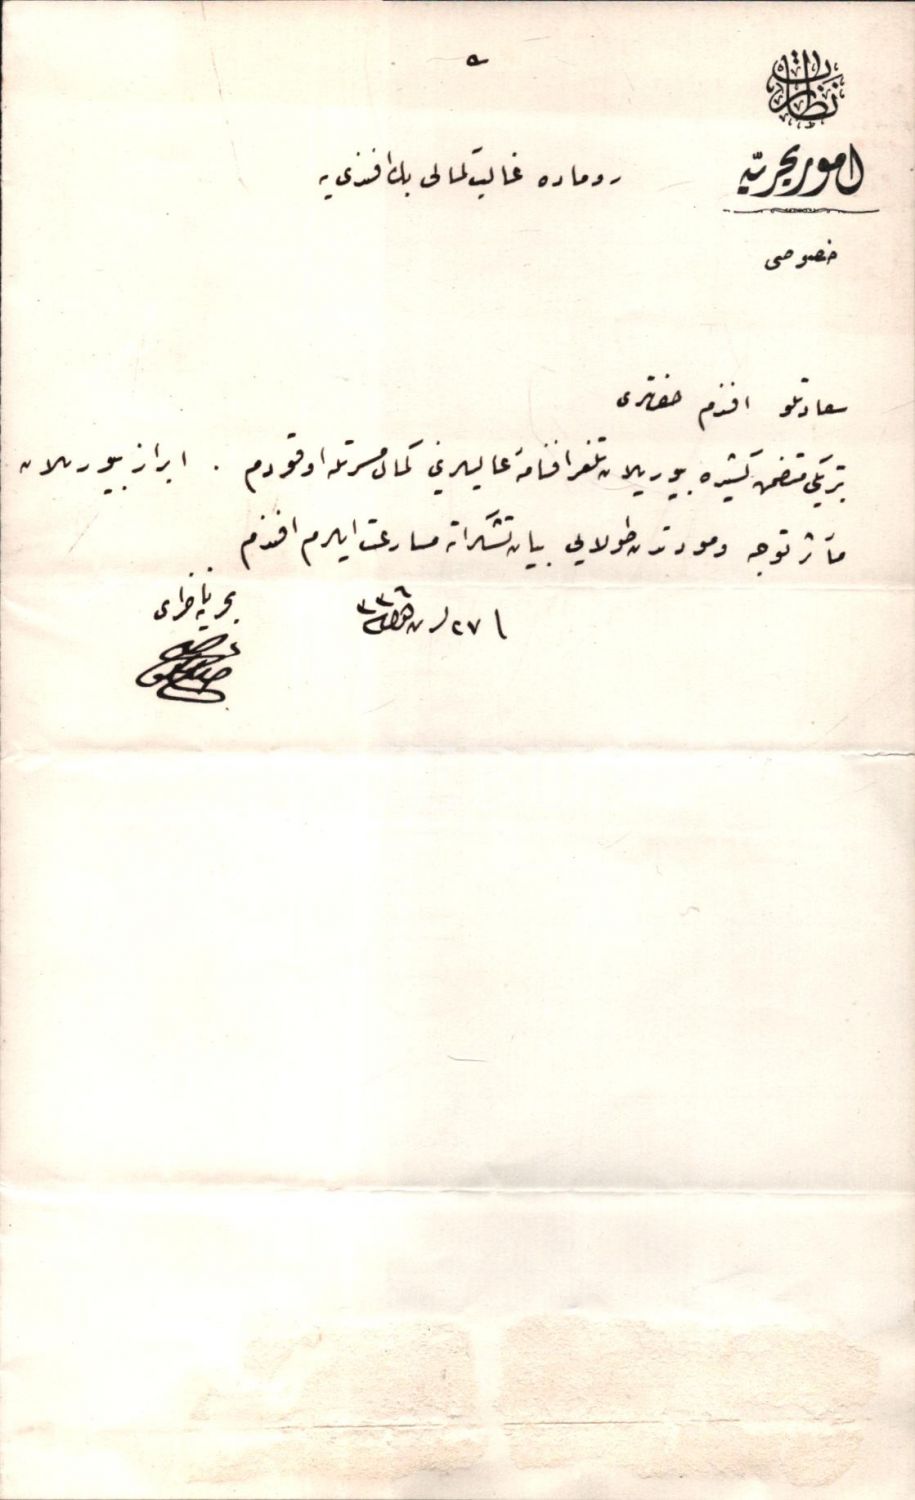 نظارت
امور بحریه
روماده غالب كمالی بك افندی یه
خصوصی
سعادتلو افندم حضرتلری
تبریكی متضمن كشیده بیوریلان تلغرافنامهٔ عالیلرینی كمال مسرتله اوقودم . ابراز بیوریلان
مآثر توجه و مودتدن طولایی بیان تشكراته مسارعت ایلرم افندم
٢٧ ٣٣٦
بحریه ناظری